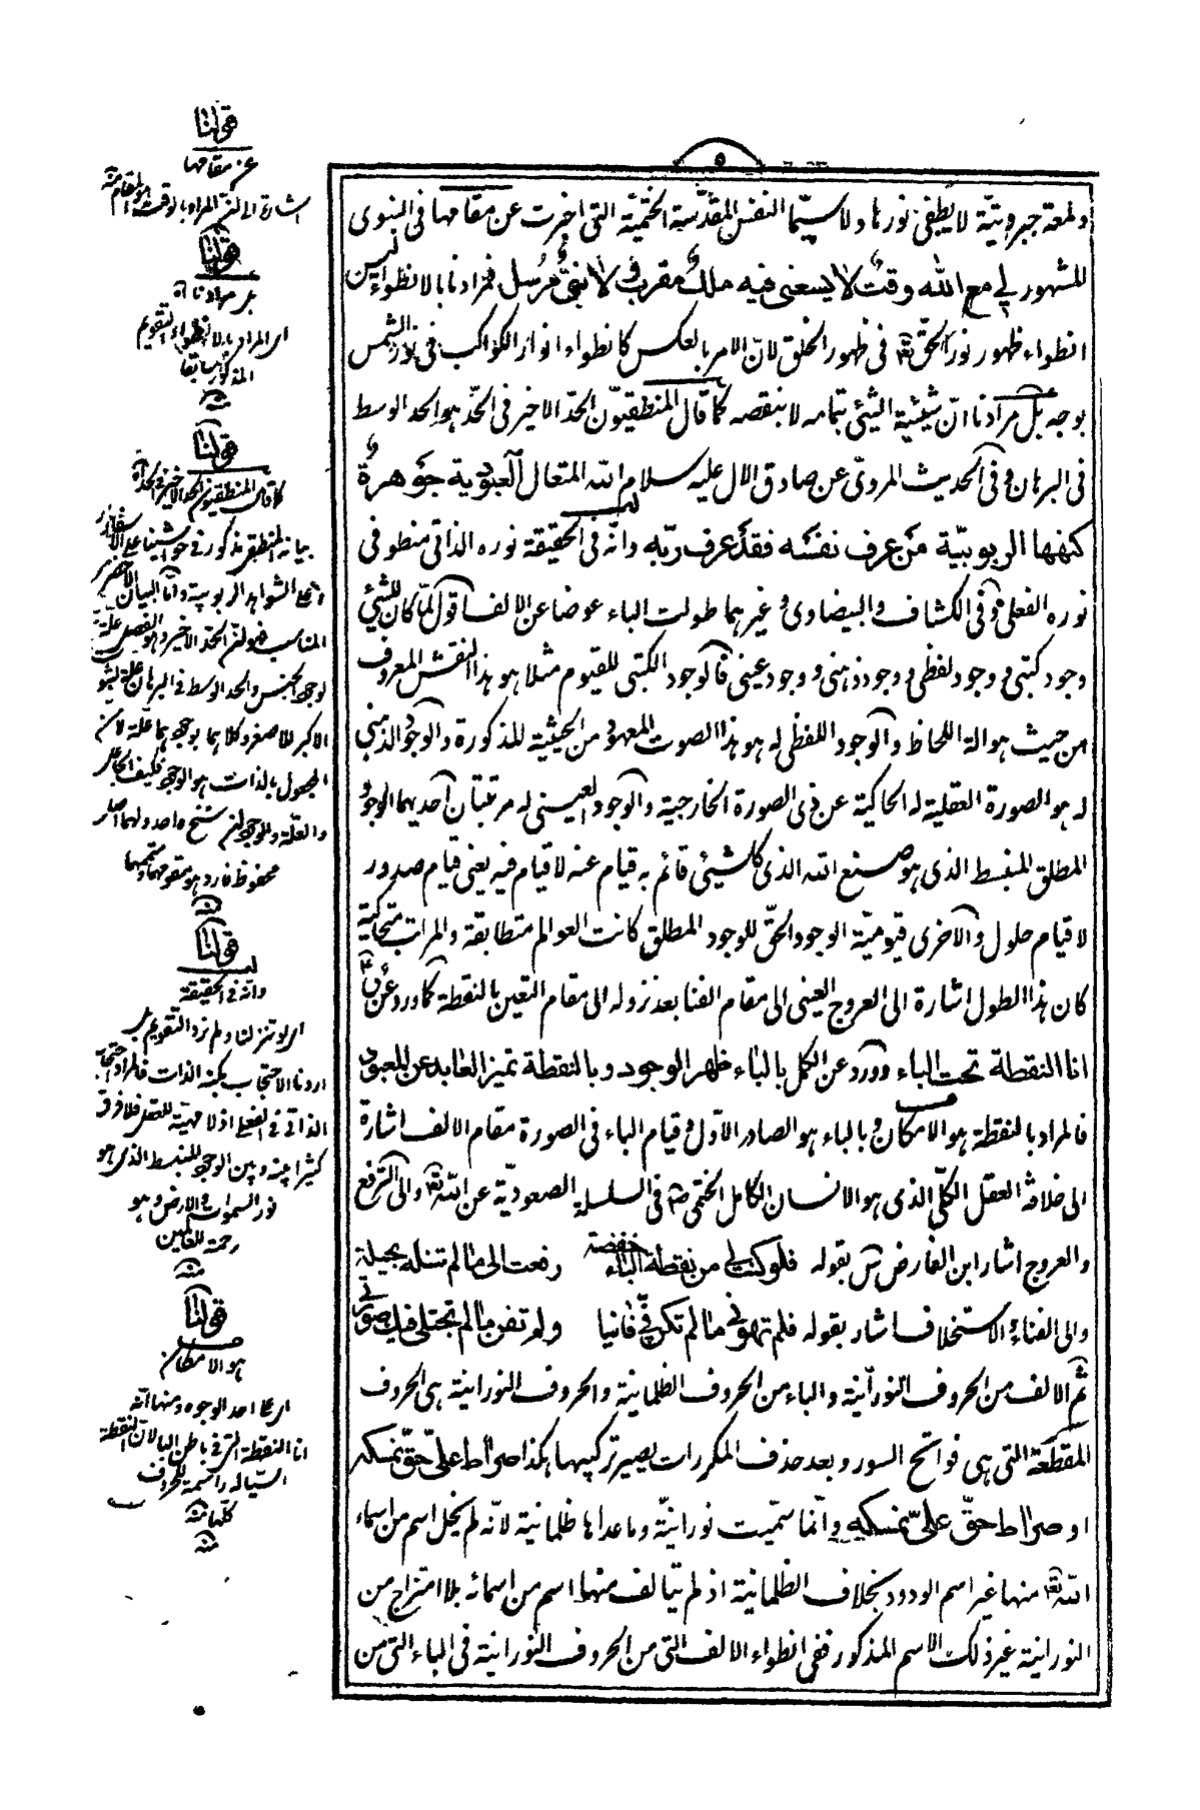 ٥
ولمعة جبروتيّة لا يطفى نورها ولا سيّما النفس المقدّسة الختميّة التى اخبرت عن مقامها فى النبوى
المشهور لى مع اللّه وقتٌ لا يسعنى فيه ملكٌ مقرب ولا نبىٌّ مرسل فمرادنا بالانطواء ليس
انطواء ظهور نور الحقّ تعالى فى ظهور الخلق لانّ الامر بالعكس كانطواء انوار الكواكب فى نور الشمس
بوجه بل مرادنا انّ شيئية الشيئ بتمامه لا بنقصه كما قال المنطقيوّن الحدّ الاخير فى الحدّ هو الحد الوسط
فى البرهان وفى الحديث المروىّ عن صادق الال عليه سلام اللّه المتعال العبودية جوهرةٌ
كنهها الربوبيّة من عرف نفسه فقد عرف ربّه وانّه فى الحقيقة نوره الذاتى منطو فى
نوره الفعلى وفى الكشاف والبيضاوى وغيرهما طولت الباء عوضا عن الالف اقول لمّا كان للشيئ
وجود كتبى ووجود لفظى ووجود ذهنى ووجود عينى فالوجود الكتبى للقيوم مثلا هو هذا النقش المعروف
من حيث هو الة اللحاظ والوجود اللفظى له هو هذا الصوت المعهود من الحيثية المذكورة والوجود الذهنى
له هو الصورة العقلية له الحاكية عن ذى الصورة الخارجية والوجود العينى له مرتبتان احديهما الوجود
المطلق المنبسط الذى هو صنع اللّه الذى كل شيئى قائم به قيام عنه لا قيام فيه يعنى قيام صدور
لا قيام حلول والاخرى قيوميّة الوجود الحقّ للوجود المطلق كانت العوالم متطابقة والمراتب متحاكية
كان هذا الطول اشارة الى العروج العينى الى مقام الفنا بعد نزوله الى مقام التعين بالنقطة كما ورد عن على
انا النقطة تحت الباء وورد عن الكمل بالباء ظهر الوجود وبالنقطة تميز العابد عن المعبود
فالمراد بالنقطة هو الامكان وبالباء هو الصادر الاوّل وقيام الباء فى الصورة مقام الالف اشارة
الى خلافة العقل الكلّى الذى هو الانسان الكامل الختمى فى السلسلة الصعوديّة عن اللّه تعالى والى الترفع
والعروج اشار ابن الفارض س بقوله فلو كنت لى من نقطة الباء خفضة رفعت الى ما لم تنله بحيلة
والى الفناء والاستخلاف اشار بقوله فلم تهونى ما لم تكن فىّ فانيا ولم تفن ما لم تجتلى فيك صورتى
ثم الالف من الحروف النورانية والباء من الحروف الظلمانية والحروف النورانية هى الحروف
المقطعة التى هى فواتح السور وبعد حذف المكررات يصير تركيبها هكذا صراط علىّ حقّ نمسكه
او صراط حقّ علىّ نمسكه وانّما سمّيت نورانيّة وما عداها ظلمانية لانّه لم يخل اسم من اسماء
اللّه تعالى منها غير اسم الودود بخلاف الظلمانية اذ لم يتالف منها اسم من اسمائه بلا امتزاج من
النورانية غير ذلك الاسم المذكور ففى انطواء الالف التى من الحروف النورانية فى الباء التى من
قولنا
عن مقامها
اشارة الى ان المراد بالوقت هو المقام منه
قولنا
بل مرادنا اه
اى المراد بالانطواء التقويم
المذكور سابقا
منه
قولنا
كما قال المنطقيون الحد الاخير فى الحد اه
بيانه المنطقى مذكور فى حواشينا على الاسفار
وعلى الشواهد الربوبية وامّا البيان الاخصر
المناسب فهو ان الحدّ الاخير وهو الفصل علّة
لوجود الجنس والحد الوسط فى البرهان علة لثبوت
الاكبر للاصغر وكلاهما بوجودهما علّة لان
المجعول بالذات هو الوجود فكيف الجاعل
والعلّة والوجود لهم سنخ واحد ولهما اصل
محفوظ فارد هو مقومهما ومتممهما
منه
قولنا
وانه فى الحقيقة
اى لو تنزلنا ولم نرد التقويم بل
اردنا الاحتجاب بكنه الذات فالمراد احتجاب
الذاتى فى الفعلى اذ لا مهيّة للعقل فلا فرق
كثيرا بينه وبين الوجود المنبسط الذى هو
نور السموات والارض وهو
رحمة للعالمين
منه
قولنا
هو الامكان
اى على احد الوجوه ومنها انّه
انا النقطة التى فى باطن الباء لان النقطة
السيّالة راسمة للحروف
كلّها منه
منه